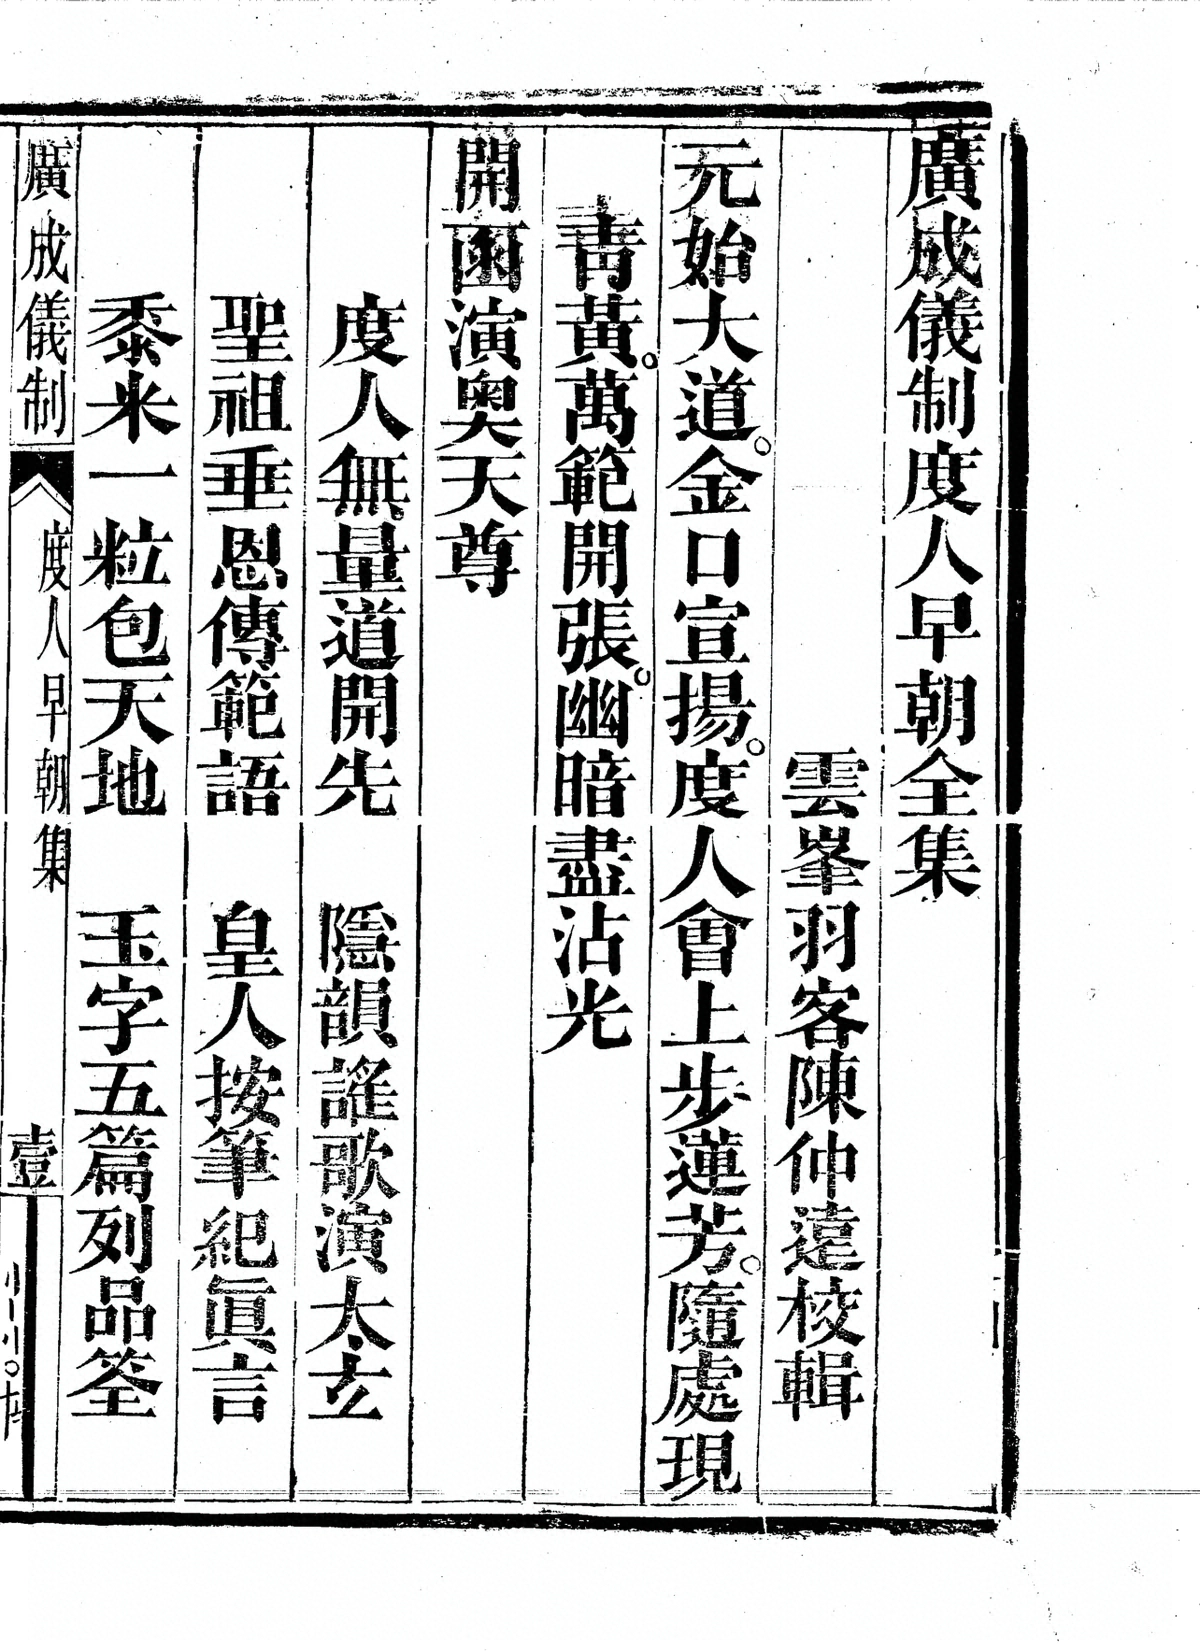 廣成儀制度人早朝全集
雲峯羽客陳仲遠校輯
元始大道。金口宣揚。度人會上步蓮芳。隨處現
青黃。萬範開張。幽暗盡沾光
開函演奧天尊
度人無量道開先　隱韻謠歌演太玄
聖祖垂恩傳範語　皇人按筆紀眞言
黍米一粒包天地　玉字五篇列品筌
廣成儀制　度人早朝集　壹